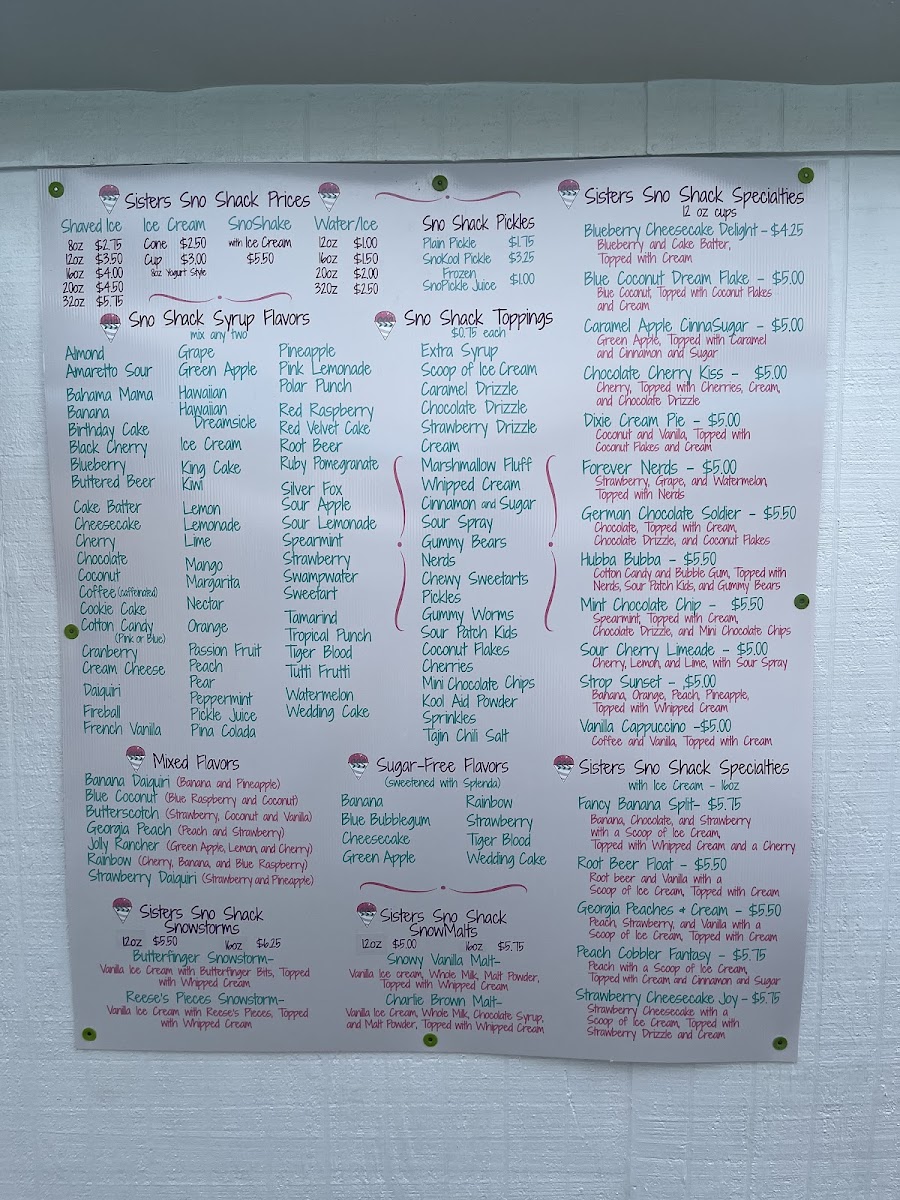 Sisters Sno Shack Prices
Shaved Ice
8oz $2.75
12oz $3.50
16oz $4.00
20oz $4.50
32oz $5.75
Ice Cream
Cone $2.50
Cup $3.00
8oz Yogurt Style
SnoShake
with Ice Cream
$5.50
Water/Ice
12oz $1.00
16oz $1.50
20oz $2.00
32oz $2.50
Sno Shack Pickles
Plain Pickle $1.75
SnoKool Pickle $3.25
Frozen
SnoPickle Juice $1.00
Sno Shack Syrup Flavors
mix any two
Almond
Amaretto Sour
Bahama Mama
Banana
Birthday Cake
Black Cherry
Blueberry
Buttered Beer
Cake Batter
Cheesecake
Cherry
Chocolate
Coconut
Coffee (caffeinated)
Cookie Cake
Cotton Candy
(Pink or Blue)
Cranberry
Cream Cheese
Daiquiri
Fireball
French Vanilla
Grape
Green Apple
Hawaiian
Hawaiian
Dreamsicle
Ice Cream
King Cake
Kiwi
Lemon
Lemonade
Lime
Mango
Margarita
Nectar
Orange
Passion Fruit
Peach
Pear
Peppermint
Pickle Juice
Pina Colada
Pineapple
Pink Lemonade
Polar Punch
Red Raspberry
Red Velvet Cake
Root Beer
Ruby Pomegranate
Silver Fox
Sour Apple
Sour Lemonade
Spearmint
Strawberry
Swampwater
Sweetart
Tamarind
Tropical Punch
Tiger Blood
Tutti Frutti
Watermelon
Wedding Cake
Sno Shack Toppings
$0.75 each
Extra Syrup
Scoop of Ice Cream
Caramel Drizzle
Chocolate Drizzle
Strawberry Drizzle
Cream
Marshmallow Fluff
Whipped Cream
Cinnamon and Sugar
Sour Spray
Gummy Bears
Nerds
Chewy Sweetarts
Pickles
Gummy Worms
Sour Patch Kids
Coconut Flakes
Cherries
Mini Chocolate Chips
Kool Aid Powder
Sprinkles
Tajin Chili Salt
Mixed Flavors
Banana Daiquiri (Banana and Pineapple)
Blue Coconut (Blue Raspberry and Coconut)
Butterscotch (Strawberry, Coconut and Vanilla)
Georgia Peach (Peach and Strawberry)
Jolly Rancher (Green Apple, Lemon, and Cherry)
Rainbow (Cherry, Banana, and Blue Raspberry)
Strawberry Daiquiri (Strawberry and Pineapple)
Sugar-Free Flavors
(sweetened with Splenda)
Banana
Blue Bubblegum
Cheesecake
Green Apple
Rainbow
Strawberry
Tiger Blood
Wedding Cake
Sisters Sno Shack
Snowstorms
12oz $5.50 16oz $6.25
Butterfinger Snowstorm-
Vanilla Ice Cream with Butterfinger Bits, Topped
with Whipped Cream
Reese's Pieces Snowstorm-
Vanilla Ice Cream with Reese's Pieces, Topped
with Whipped Cream
Sisters Sno Shack
SnowMalts
12oz $5.00 16oz $5.75
Snowy Vanilla Malt-
Vanilla Ice cream, Whole Milk, Malt Powder,
Topped with Whipped Cream
Charlie Brown Malt-
Vanilla Ice Cream, Whole Milk, Chocolate Syrup,
and Malt Powder, Topped with Whipped Cream
Sisters Sno Shack Specialties
12 oz cups
Blueberry Cheesecake Delight - $4.25
Blueberry and Cake Batter,
Topped with Cream
Blue Coconut Dream Flake - $5.00
Blue Coconut, Topped with Coconut Flakes
and Cream
Caramel Apple CinnaSugar - $5.00
Green Apple, Topped with Caramel
and Cinnamon and Sugar
Chocolate Cherry Kiss - $5.00
Cherry, Topped with Cherries, Cream,
and Chocolate Drizzle
Dixie Cream Pie - $5.00
Coconut and Vanilla, Topped with
Coconut Flakes and Cream
Forever Nerds - $5.00
Strawberry, Grape, and Watermelon,
Topped with Nerds
German Chocolate Soldier - $5.50
Chocolate, Topped with Cream,
Chocolate Drizzle, and Coconut Flakes
Hubba Bubba - $5.50
Cotton Candy and Bubble Gum, Topped with
Nerds, Sour Patch Kids, and Gummy Bears
Mint Chocolate Chip - $5.50
Spearmint, Topped with Cream,
Chocolate Drizzle, and Mini Chocolate Chips
Sour Cherry Limeade - $5.00
Cherry, Lemon, and Lime, with Sour Spray
Strop Sunset - $5.00
Banana, Orange, Peach, Pineapple,
Topped with Whipped Cream
Vanilla Cappuccino -$5.00
Coffee and Vanilla, Topped with Cream
Sisters Sno Shack Specialties
with Ice Cream - 16oz
Fancy Banana Split- $5.75
Banana, Chocolate, and Strawberry
with a Scoop of Ice Cream,
Topped with Whipped Cream and a Cherry
Root Beer Float - $5.50
Root beer and Vanilla with a
Scoop of Ice Cream, Topped with Cream
Georgia Peaches & Cream - $5.50
Peach, Strawberry, and Vanilla with a
Scoop of Ice Cream, Topped with Cream
Peach Cobbler Fantasy - $5.75
Peach with a Scoop of Ice Cream,
Topped with Cream and Cinnamon and Sugar
Strawberry Cheesecake Joy - $5.75
Strawberry Cheesecake with a
Scoop of Ice Cream, Topped with
Strawberry Drizzle and Cream